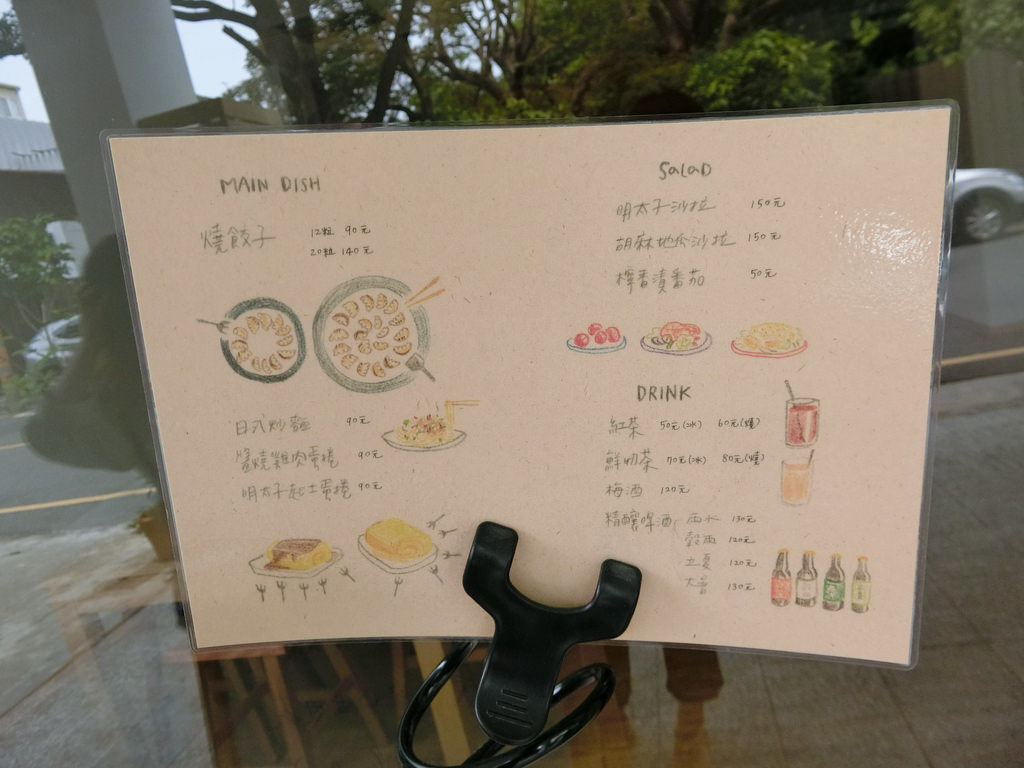 MAIN DISH
燒餃子 12粒 90元
20粒 140元
日式炒麵 90元
醬燒雞肉蛋捲 90元
明太子起士蛋捲 90元
SALAD
明太子沙拉 150元
胡麻地瓜沙拉 150元
檸香漬番茄 50元
DRINK
紅茶 50元(冰) 60元(燒)
鮮奶茶 70元(冰) 80元(燒)
梅酒 120元
精釀啤酒 雨水 130元
穀雨 120元
立夏 120元
大暑 130元